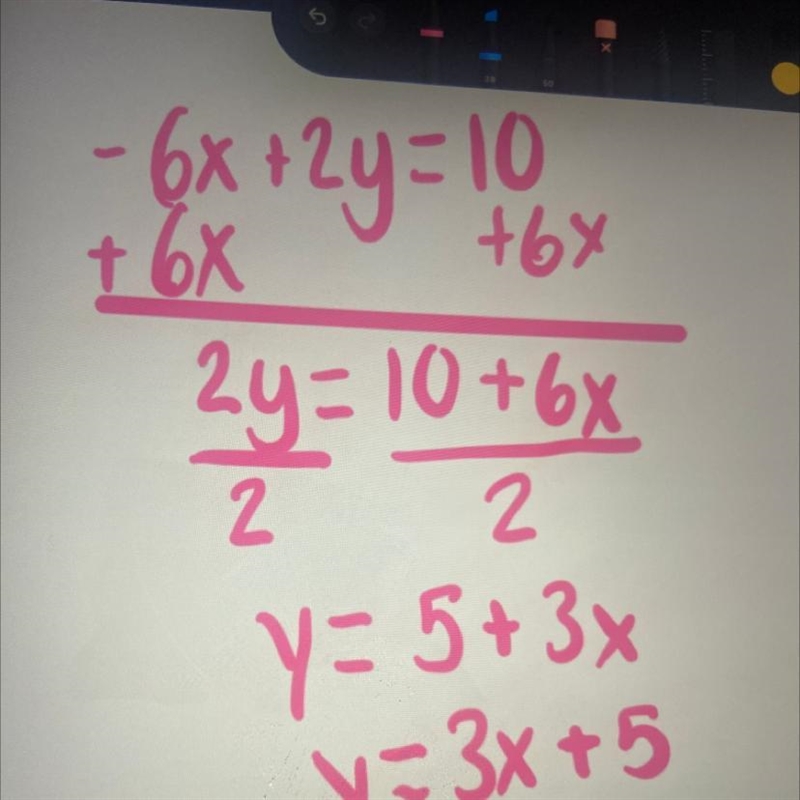 - 6x + 2y = 10
+ 6x +6x
2y = 10 + 6x
2 2
y = 5 + 3x
y = 3x + 5